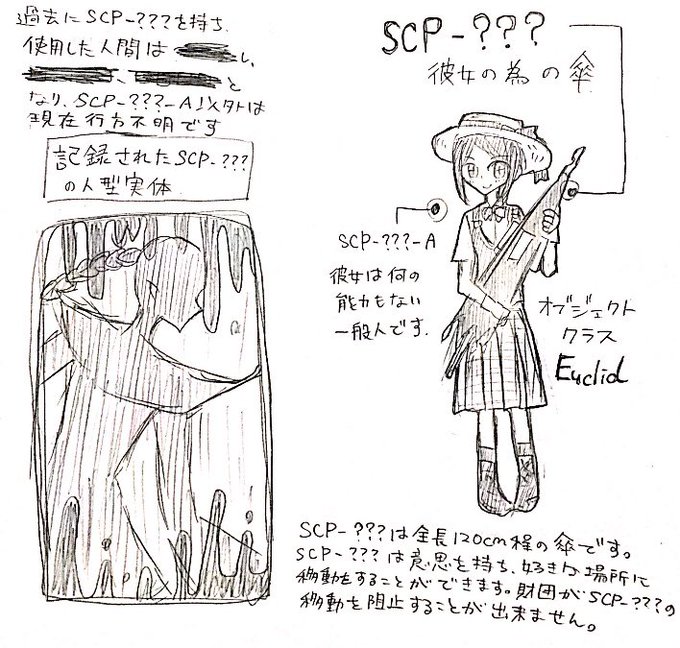 過去にSCP-???を持ち、
使用した人間は
し、
、
と
なり、SCP-???-A以外は
現在行方不明です
記録されたSCP-???
の人型実体
SCP-???
彼女の為の傘
SCP-???-A
彼女は何の
能力もない
一般人です.
オブジェクト
クラス
Euclid
SCP-???は全長120cm程の傘です。
SCP-???は意思を持ち、好きな場所に
移動をすることができます。財団がSCP-???の
移動を阻止することが出来ません。